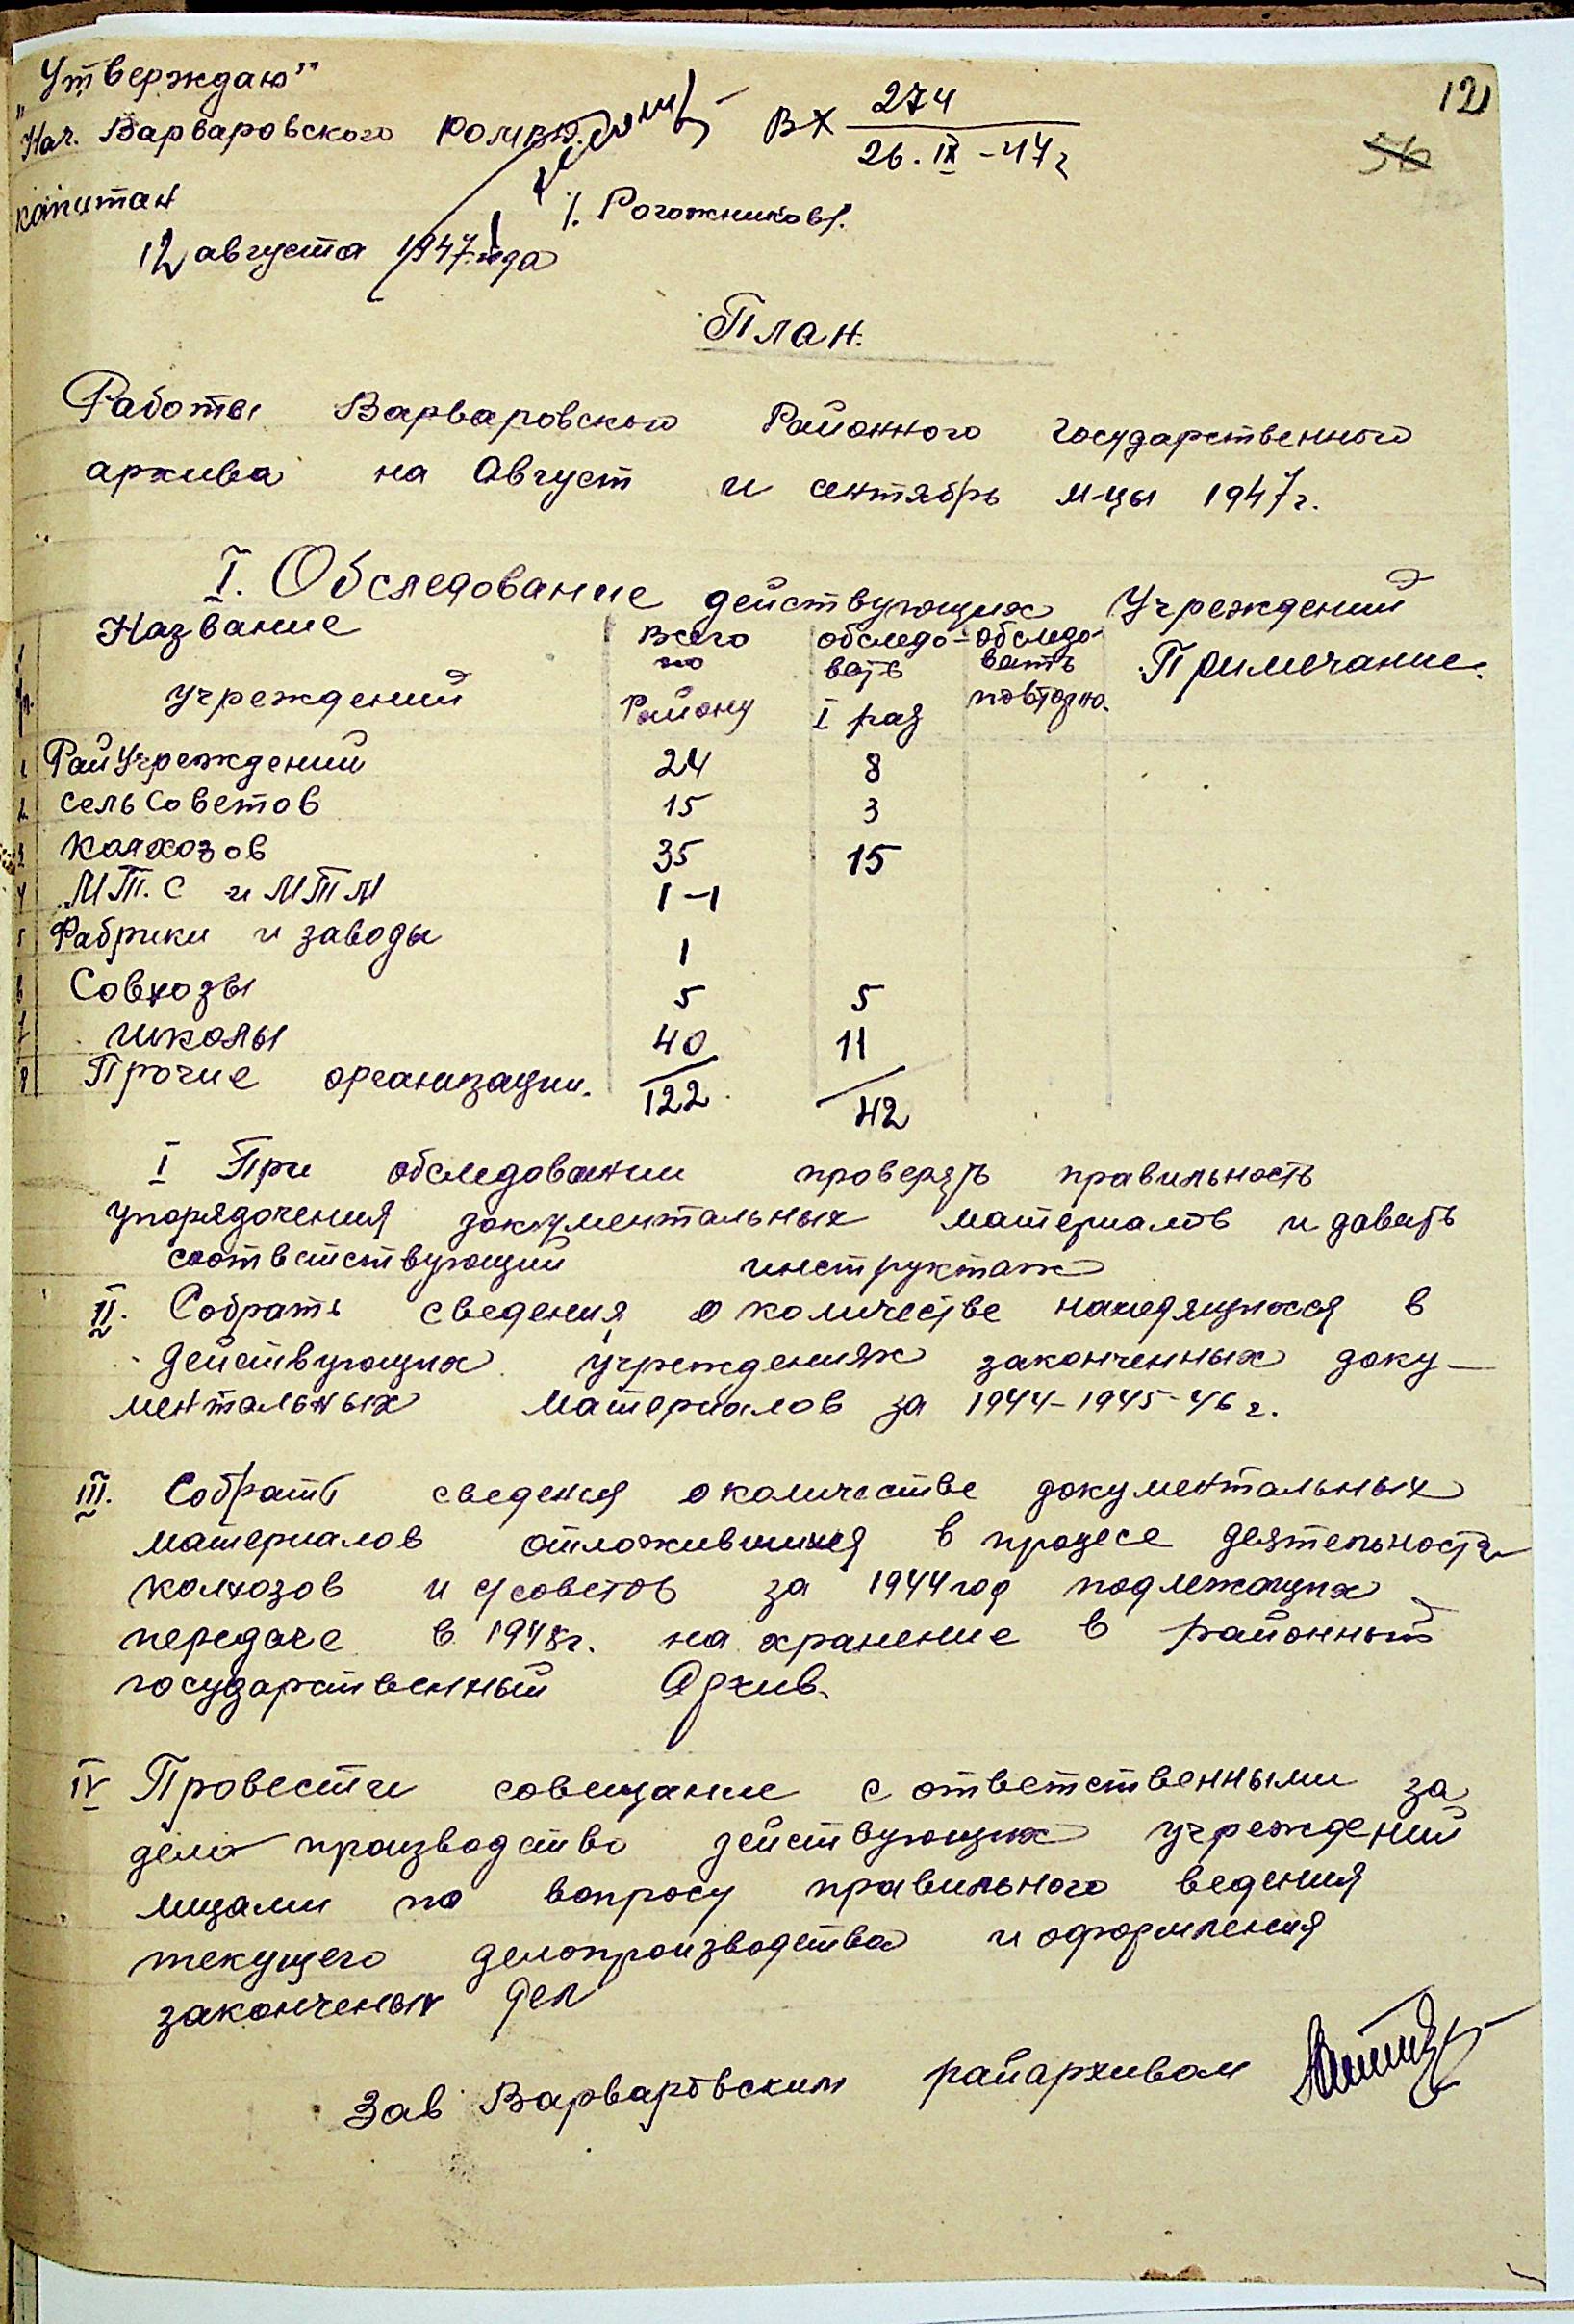 „Утверждаю"
Нач. Варваровского РОМВД.
Вх 274
26.IX-47г
121
56
капитан
/. Рогожников/.
12 августа 1947 года
План.
Работы Варваровского Районного Государственного
архива на Август и сентябрь м-цы 1947г.
I. Обследование действующих Учреждений
Название учреждений | всего по Району | обследовать I раз | обследовать повторно. | Примечание.
1 РайУчреждений 24 8
2 сельСоветов 15 3
3 Колхозов 35 15
4 М.Т.С и МТМ 1-1
5 Фабрики и заводы 1
6 Совхозы 5 5
7 школы 40 11
8 Прочие организации. 122 42
I При обследовании проверять правильность
упорядочения документальных материалов и давать
соответствующий инструктаж
II. Собрать сведения о количестве находящихся в
действующих учреждениях законченных доку-
ментальных материалов за 1944-1945-46 г.
III. Собрать сведения о количестве документальных
материалов отложившихся в процесе деятельности
колхозов и с/советов за 1944 год подлежащих
передаче в 1948г. на хранение в районный
государственный Архив.
IV Провести совещание с ответственными за
дело производство действующих учреждений
лицами по вопросу правильного ведения
текущего делопроизводства и оформления
законченых дел
Зав Варваровским райархивом